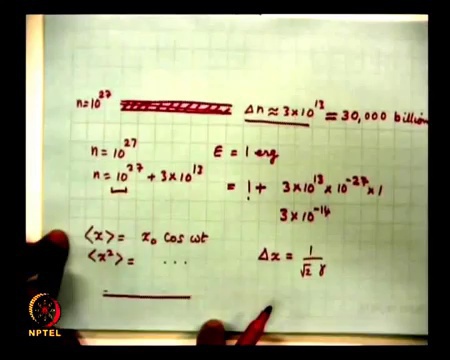 n=10^27 Δn ≈ 3×10^13 = 30,000 billion
n = 10^27 E = 1 erg
n = 10^27 + 3×10^13 = 1 + 3×10^13 × 10^-27 × 1
3×10^-14
⟨x⟩ = x₀ cos ωt
⟨x²⟩ = ... Δx = 1/√2 γ
NPTEL